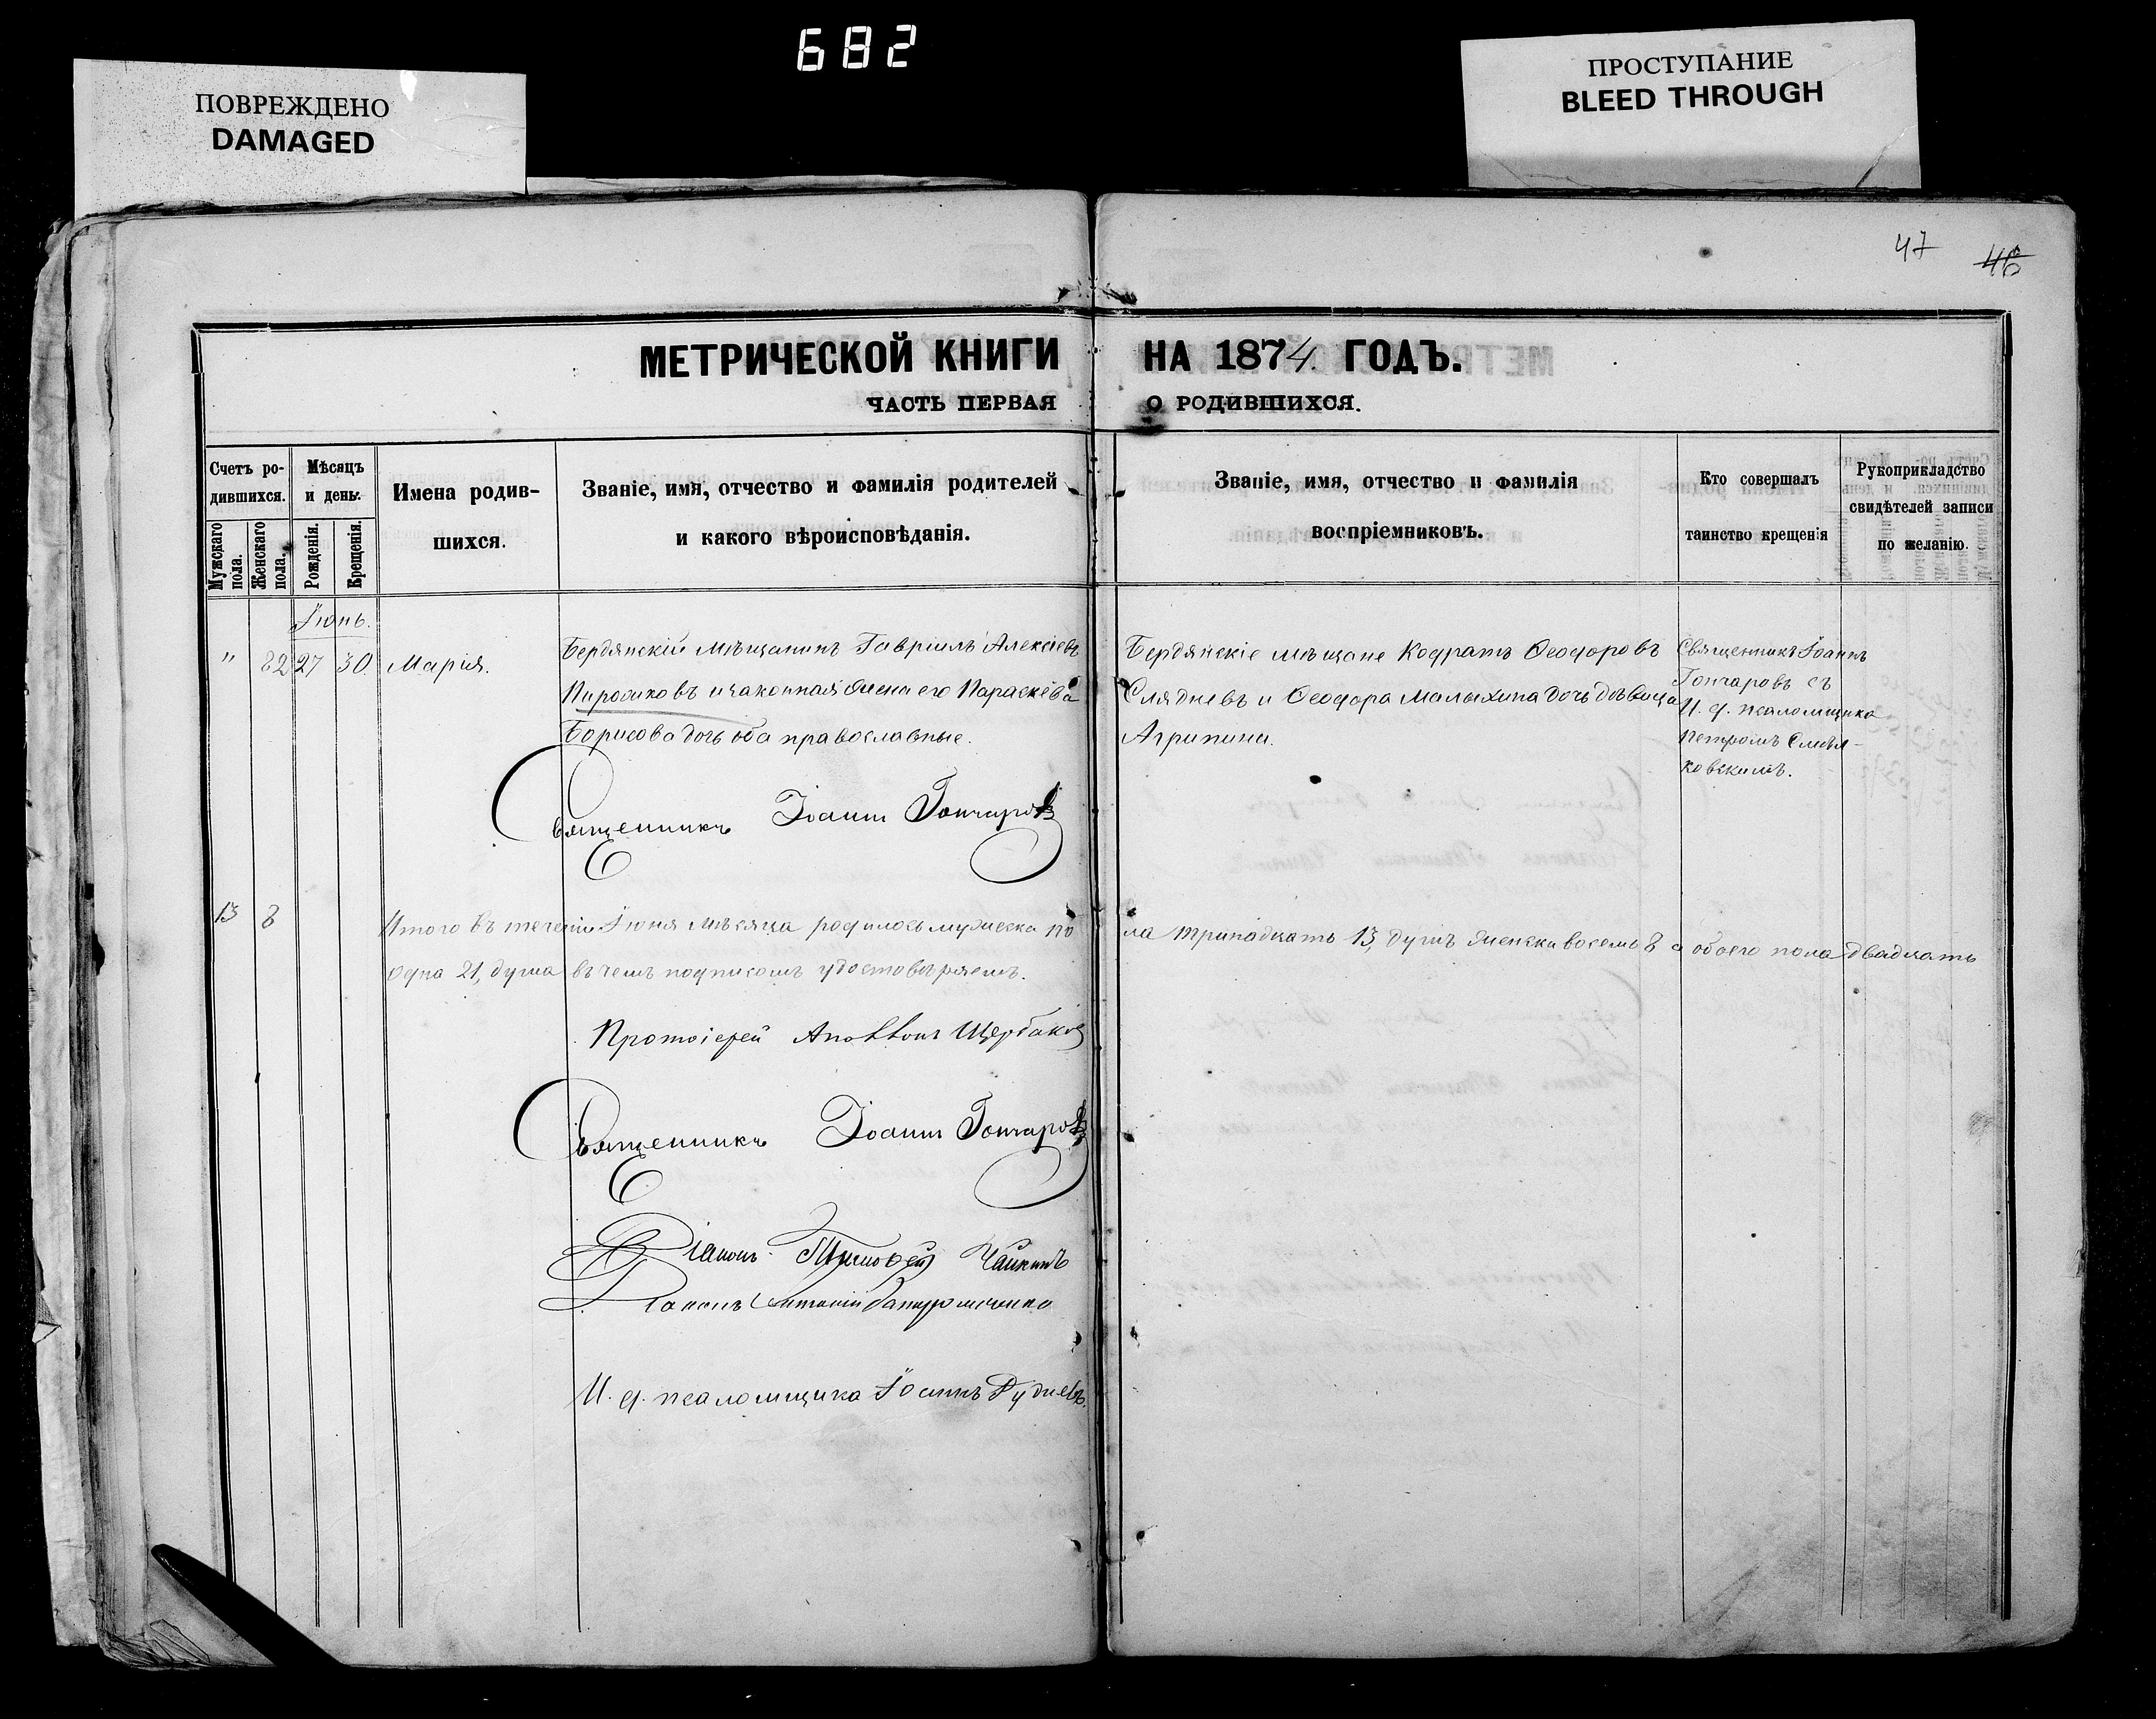 682
ПОВРЕЖДЕНО
DAMAGED
ПРОСТУПАНИЕ
BLEED THROUGH
47 46
МЕТРИЧЕСКОЙ КНИГИ НА 1874 ГОДЪ.
ЧАСТЬ ПЕРВАЯ О РОДИВШИХСЯ.
Счетъ ро-
дившихся.
Мужскаго пола.
Женскаго пола.
Мѣсяцъ
и день.
Рожденія.
Крещенія.
Имена родив-
шихся.
Званіе, имя, отчество и фамилія родителей
и какого вѣроисповѣданія.
Званіе, имя, отчество и фамилія
воспріемниковъ.
Кто совершалъ
таинство крещенія
Рукоприкладство
свидѣтелей записи
по желанію.
Іюнь.
" 82 27 30 Марія.
Бердянскій мѣщанинъ Гавріилъ Алексіевъ
Пироиковъ и законная жена его Параскева
Борисова дочь оба православные.
Бердянскіе мѣщане Кодратъ Ѳеодоровъ
Слядневъ и Ѳеодора Малыхина дочь дѣвица
Агрипина.
Священникъ Іоаннъ
Гончаровъ съ
И. д. псаломщика
Петромъ Смѣл-
ковскимъ.
Священникъ Іоаннъ Гончаровъ
13 8 Итого въ теченіи Іюня мѣсяца родилось мужска по
ла тринадцать 13, душъ женска восемь 8 а обоего пола двадцать
одна 21, душа въ чемъ подписомъ удостовѣряемъ.
Протоіерей Аполлонъ Щербаковъ
Священникъ Іоаннъ Гончаровъ
Діаконъ Тимофей Чайкинъ
Діаконъ Антоній
И. д. псаломщика Іоаннъ Рудневъ.